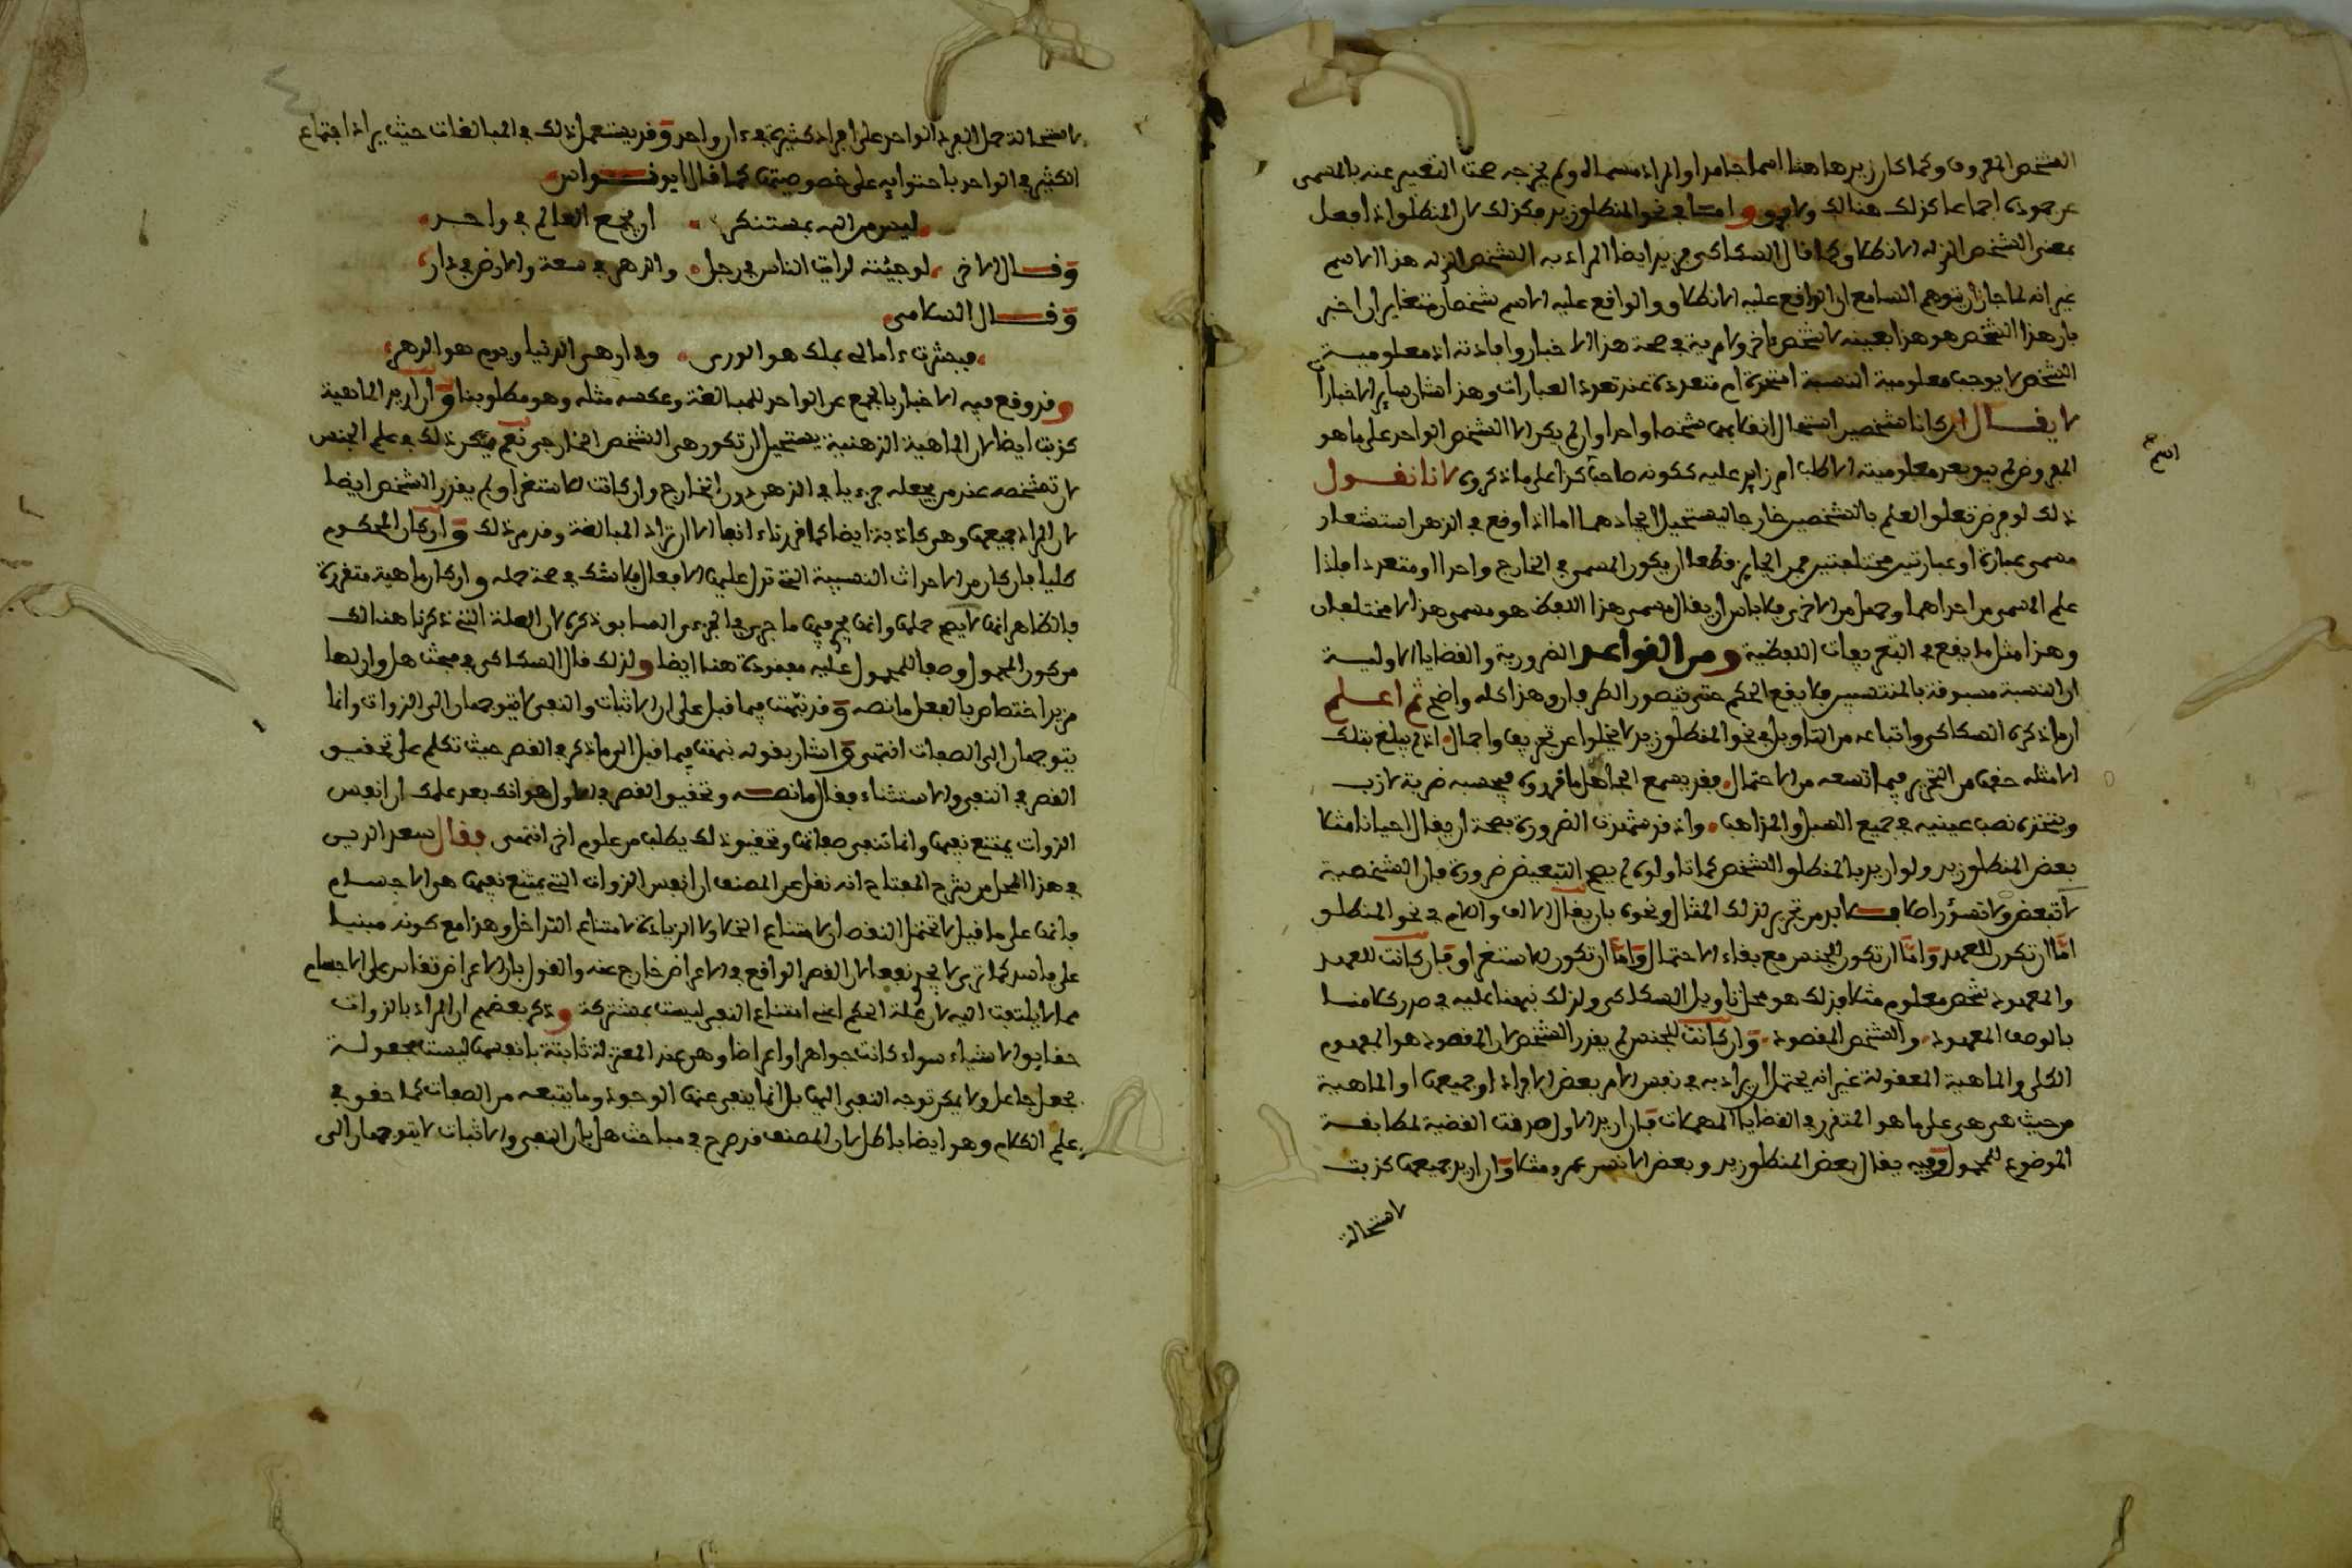 الشخص المعروف وكما كان زيد هاهنا اسما جامدا والمراد مسماه ولم يخرجه صحة التعبير عنه بالمسمى
عن جموده اجماعا كذلك هنالك ولا فرق واما في نحو المنطلق زيد فكذلك لان المنطلق اذا جعل
بمعنى الشخص الذي له الانطلاق كما قال السكاكي فزيد ايضا المراد به الشخص الذي له هذا الاسم
غير انه لما جاز ان يتوهم السامع ان الواقع عليه الانطلاق والواقع عليه الاسم شخصان متغايران اخبر
بان هذا الشخص هو هذا بعينه لا شخص ءاخر ولا مرية في صحة هذا الاخبار وافادته اذ معلومية
الشخص لا يوجب معلومية النسبة اتحدت ام تعددت عند تعدد العبارات وهذا شان ساير الاخبار
لا يقال ان كانا شخصين استحال انقلابهما شخصا واحدا وان لم يكن الا الشخص الواحد على ما هو
اسم
المفروض لم يبق بعد معلوميته الا طلب امر زايد عليه ككونه صاحب كذا على ما ذكروه لانا نقول
ذلك لو فرض تعلق العلم بالشخصين خارجا فيستحيل اتحادهما اما اذا وقع في الذهن استشعار
مسمى عبارة او عبارتين مختلفتين فمن الجايز قطعا ان يكون المسمى في الخارج واحدا او متعددا فاذا
علم المسمى من احداهما وجهل من الاخرى فلا باس ان يقال مسمى هذا اللفظ هو مسمى هذا لا مختلفان
وهذا مثل ما يقع في التعريفات اللفظية ومن القواعد الضرورية والقضايا الاولية
ان النسبة مسبوقة بالمنتسبين فلا يقع الحكم حتى يتصور الطرفان وهذا كله واضح ثم اعلم
ان ما ذكره السكاكي واتباعه من التاويل في نحو المنطلق زيد لا يخلوا عن تحريف واجمال اذ لم يبلغ بتلك
الامثلة حقها من التحرير فيما تسعه من الاحتمال فقد يسمع الجاهل ما قرروه فيحسبه ضربة لازب
ويتخذه نصب عينيه في جميع السبل والمذاهب واذ قد شهدت الضرورة بصحة ان يقال احيانا مثلا
بعض المنطلق زيد ولو اريد بالمنطلق الشخص كما تاولوه لم يصح التبعيض ضرورة فان الشخصية
لا تبعض ولا تسور اصلا فلا بد من تحرير لذلك المقال ونحوه بان يقال الالف واللام في نحو المنطلق
اما ان تكون للعهد واما ان تكون للجنس مع بقاء الاحتمال واما ان تكون للاستغراق فان كانت للعهد
والمعهود شخص معلوم مثلا فذلك هو محل تاويل السكاكي ولذلك نبهنا عليه في صدر كلامنا
بالوصف المعهود والشخص المقصود وان كانت للجنس لم يقدر الشخص لان المقصود هو المفهوم
الكلي والماهية المعقولة غير انه يحتمل ان يراد به في نفس الامر بعض الافراد او جميعها او الماهية
من حيث هي هي على ما هو المتقرر في القضايا المهملات فان اريد الاول صدقت القضية لمطابقة
الموضوع للمحمول وفيه يقال بعض المنطلق زيد وبعض الانس عمرو مثلا وان اريد جميعها كذبت
لاستحالة
لاستحالة حمل الفرد الواحد على افراد كثيرة في ءان واحد وقد يستعمل ذلك في المبالغات حيث يراد اجتماع
الكثير في الواحد باحتوايه على خصوصيتها كما قال ابو نواس
ليس من الله بمستنكر ان يجمع العالم في واحد
وقال الاخر لو جيئته لرايت الناس في رجل والدهر في ساعة والارض في دار
وقال السلامي
فبشرت ءامالي بملك هو الورى ودار هي الدنيا ويوم هو الدهر
وقد وقع فيه الاخبار بالجمع عن الواحد للمبالغة وعكسه مثله وهو مطلوبنا وان اريد الماهية
كذبت ايضا لان الماهية الذهنية يستحيل ان تكون هي الشخص الخارجي نعم يمكن ذلك في علم الجنس
لان تشخصه عند من يجعله جزءيا في الذهن دون الخارج وان كانت للاستغراق لم يقدر الشخص ايضا
لان المراد جميعها وهي كاذبة ايضا كما قررناه ءانفا الا ان تراد المبالغة وقد مر ذلك وان كان المحكوم
كليا فان كان من الاحداث النسبية التي تدل عليها الافعال فلا شك في صحة حمله وان كان ماهية متقررة
فالظاهر انها لا يصح حملها وانها يجري فيها ما جرى في الجزءي السابق ذكره لان العلة التي ذكرنا هنالك
من كون المحمول وصفا للمحمول عليه مفقودة هنا ايضا ولذلك قال السكاكي في مبحث هل وان لها
مزيد اختصاص بالفعل ما نصه وقد نبهت فيما قبل على ان الاثبات والنفي لا يتوجهان الى الذوات وانما
يتوجهان الى الصفات انتهى واشار بقوله نبهت فيما قبل الى ما ذكره في القصر حيث تكلم على تحقيق
القصر في النفي والاستثناء فقال ما نصه وتحقيق القصر في الاول هو انك بعد علمك ان انفس
الذوات يمتنع نفيها وانما تنفى صفاتها وتحقيق ذلك يطلب من علوم اخر انتهى فقال سعد الدين
في هذا المحل من شرح المفتاح انه نقل عن المصنف ان انفس الذوات التي يمتنع نفيها هي الاجسام
فانها على ما قيل لا تحتمل النقصان لامتناع الخلا ولا الزيادة لامتناع التداخل وهذا مع كونه مبنيا
على فاسد كما ترى لا يجدي نفعا لان القصر الواقع في الاعراض خارج عنه والقول بان الاعراض تقاس على الاجسام
مما لا يلتفت اليه لان علة الحكم اعني امتناع النفي ليست بمشتركة وذكر بعضهم ان المراد بالذوات
حقايق الاشياء سواء كانت جواهر او اعراضا وهي عند المعتزلة ثابتة بانفسها ليست مجعولة
بجعل جاعل ولا يمكن توجه النفي اليها بل انما ينفى عنها الوجود وما يتبعه من الصفات كما حقق في
علم الكلام وهو ايضا باطل لان المصنف قد صرح في مباحث هل بان النفي والاثبات لا يتوجهان الى